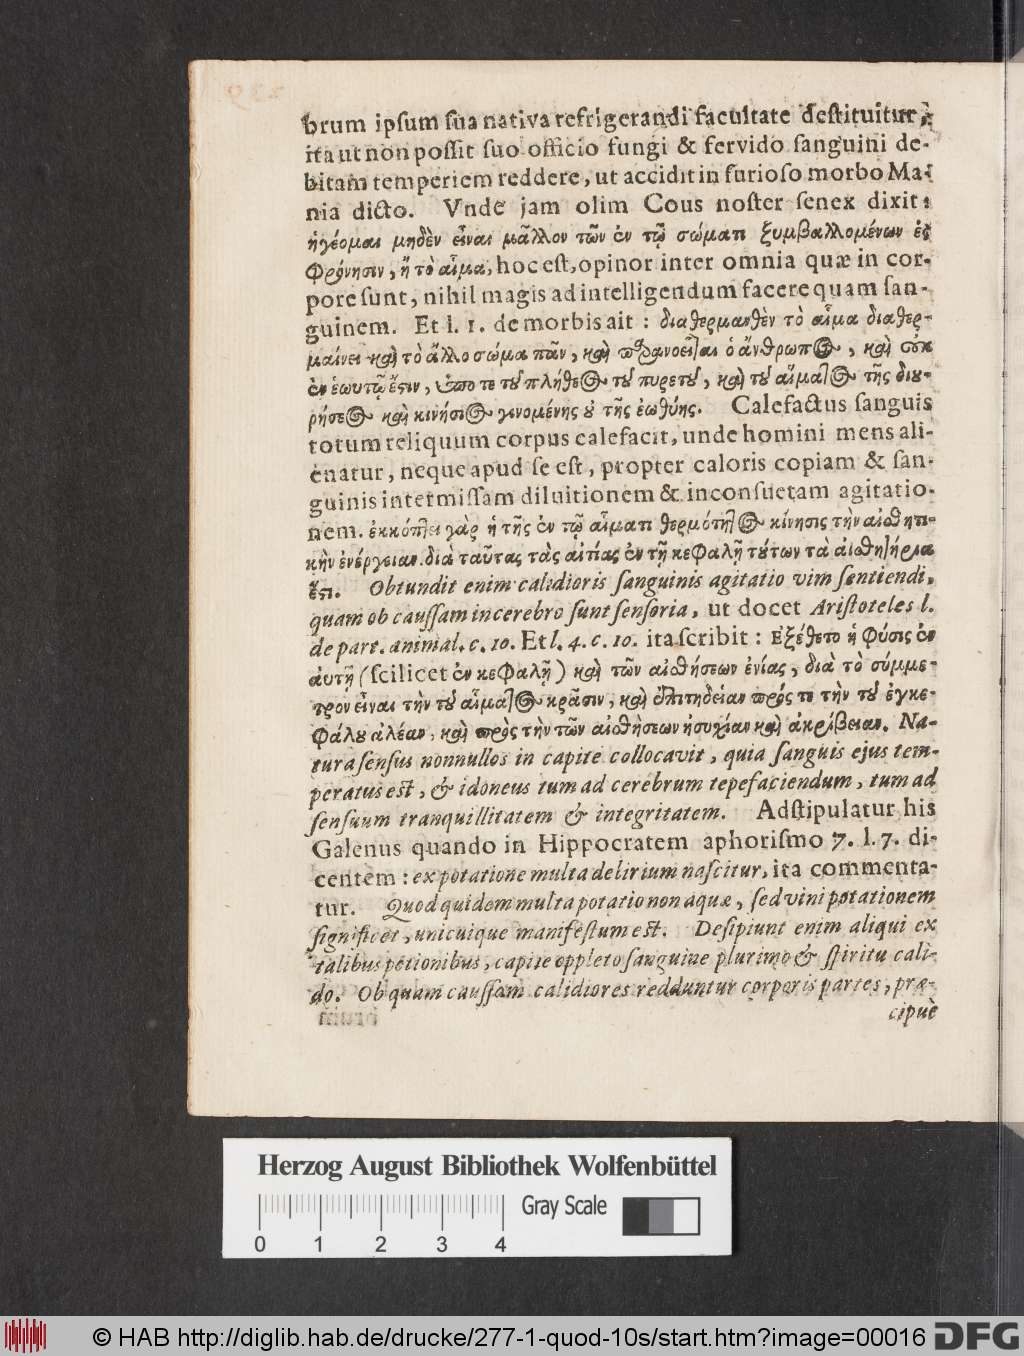 brum ipsum sua nativa refrigerandi facultate destituitur,
ita ut non possit suo officio fungi & fervido sanguini de-
bitam temperiem reddere, ut accidit in furioso morbo Ma-
nia dicto. Vnde jam olim Cous noster senex dixit:
ἡγέομαι μηδὲν εἶναι μᾶλλον τῶν ἐν τῷ σώματι ξυμβαλλομένων ἐς
φρόνησιν, ἢ τὸ αἷμα, hoc est, opinor inter omnia quæ in cor-
pore sunt, nihil magis ad intelligendum facere quam san-
guinem. Et l. 1. de morbis ait: διαθερμανθὲν τὸ αἷμα διαθερ-
μαίνει καὶ τὸ ἄλλο σῶμα πᾶν, καὶ παρανοεῖται ὁ ἄνθρωπος, καὶ οὐκ
ἐν ἑωυτῷ ἔστιν, ὑπο τε τοῦ πλήθεος τοῦ πυρετοῦ, καὶ τοῦ αἵματος τῆς διου-
ρήσεος καὶ κινήσιος γινομένης οὐ τῆς ἐωθύης. Calefactus sanguis
totum reliquum corpus calefacit, unde homini mens ali-
enatur, neque apud se est, propter caloris copiam & san-
guinis intermissam diluitionem & inconsuetam agitatio-
nem. ἐκκόπτει γὰρ ἡ τῆς ἐν τῷ αἵματι θερμότητος κίνησις τὴν αἰσθητι-
κὴν ἐνέργειαν. διὰ ταῦτας τὰς αἰτίας ἐν τῇ κεφαλῇ τούτων τὰ αἰσθητήρια
ἔστι. Obtundit enim calidioris sanguinis agitatio vim sentiendi,
quam ob caussam in cerebro sunt sensoria, ut docet Aristoteles l.
de part. animal. c. 10. Et l. 4. c. 10. ita scribit: Ἐξέθετο ἡ φύσις ἐν
ἀυτῇ (scilicet ἐν κεφαλῇ) καὶ τῶν αἰσθήσεων ἐνίας, διὰ τὸ σύμμε-
τρον εἶναι τὴν τοῦ αἵματος κρᾶσιν, καὶ ἐπιτηδείαν πρός τε τὴν τοῦ ἐγκε-
φάλου ἀλέαν, καὶ πρὸς τὴν τῶν αἰσθήσεων ἡσυχίαν καὶ ἀκρίβειαν. Na-
tura sensus nonnullos in capite collocavit, quia sanguis ejus tem-
peratus est, & idoneus tum ad cerebrum tepefaciendum, tum ad
sensuum tranquillitatem & integritatem. Adstipulatur his
Galenus quando in Hippocratem aphorismo 7. l. 7. di-
centem: ex potatione multa delirium nascitur, ita commenta-
tur. Quod quidem multa potatio non aquæ, sed vini potationem
significet, unicuique manifestum est. Desipiunt enim aliqui ex
talibus potionibus, capite oppleto sanguine plurimo & spiritu cali-
do. Ob quam caussam calidiores redduntur corporis partes, præ-
cipuè
Herzog August Bibliothek Wolfenbüttel
Gray Scale
0 1 2 3 4
© HAB http://diglib.hab.de/drucke/277-1-quod-10s/start.htm?image=00016
DFG